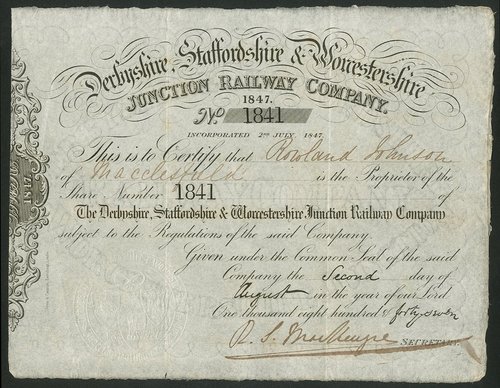 Derbyshire, Staffordshire & Worcestershire
JUNCTION RAILWAY COMPANY.
1847.
No 1841
INCORPORATED 2ND JULY, 1847.
This is to Certify that Rowland Johnson
of Macclesfield is the Proprietor of the
Share Number 1841 of
The Derbyshire, Staffordshire & Worcestershire Junction Railway Company
subject to the Regulations of the said Company.
Given under the Common Seal of the said
Company the Second day of
August in the year of our Lord
One thousand eight hundred & forty-seven
R. S. Mackenzie SECRETARY.
1847.